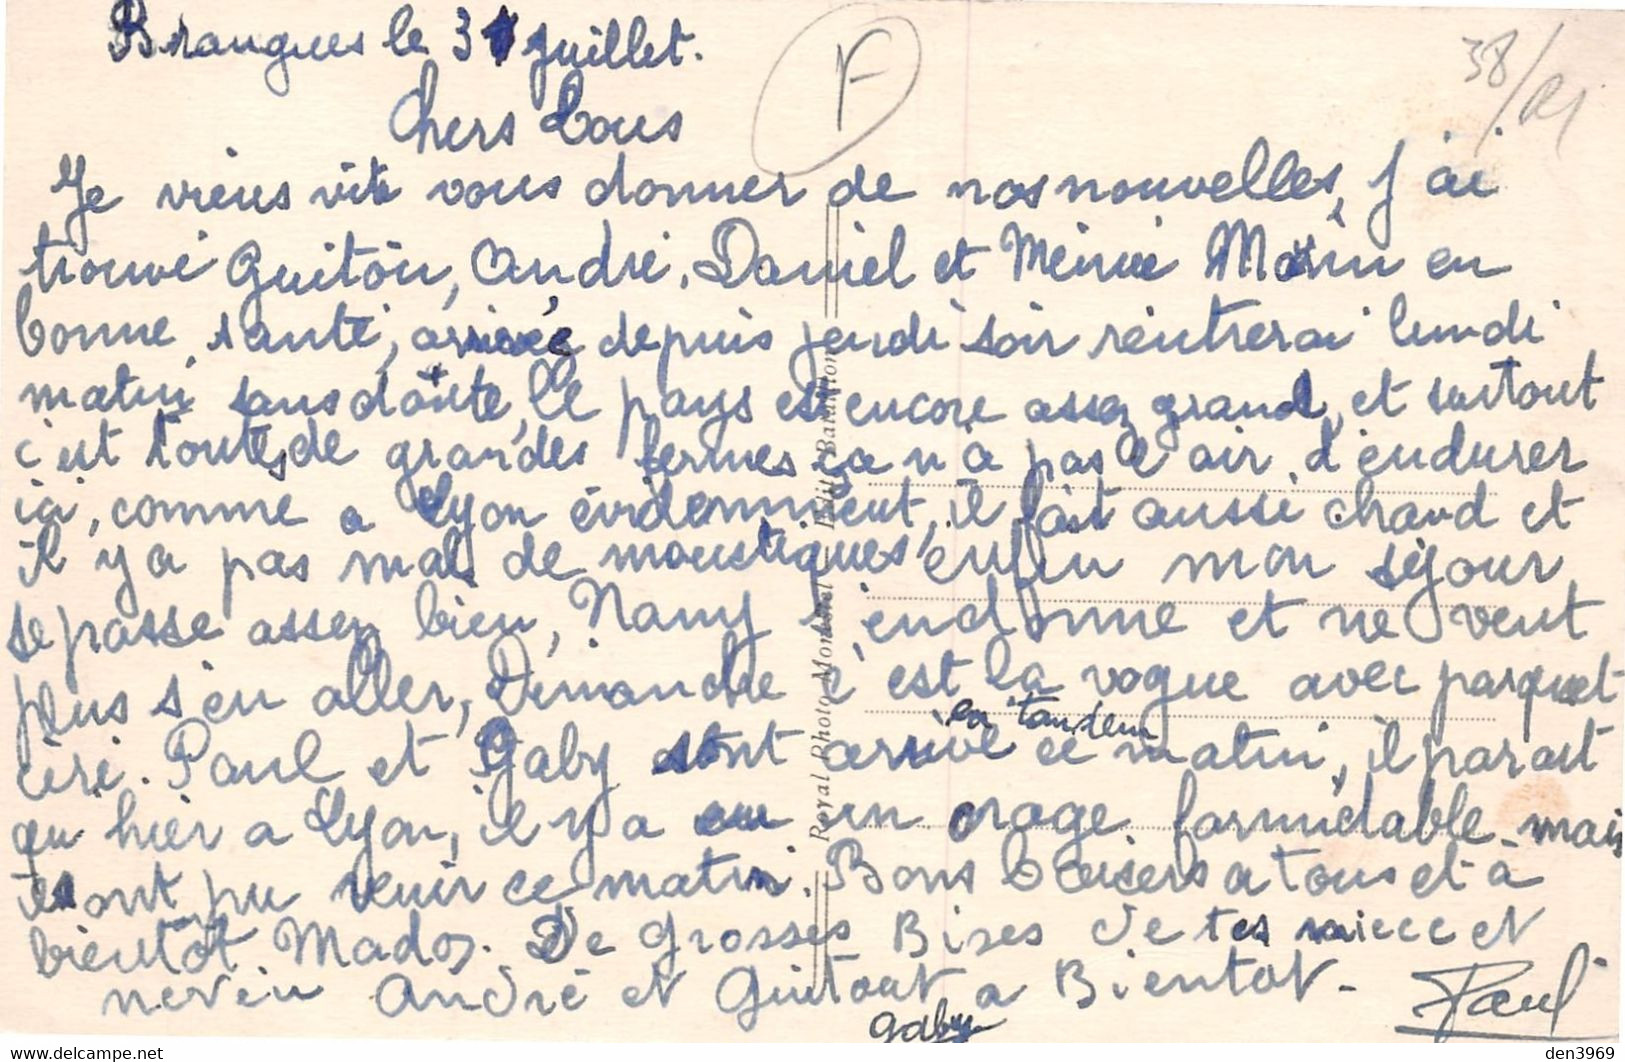 Brangues le 31 juillet.
F
38/
Chers tous
Je viens vite vous donner de nos nouvelles, j'ai
trouvé Guitou, André, Daniel et Mémé en
bonne santé, arrivée depuis jeudi soir rentrerai lundi
matin sans doute, le pays est encore assez grand, et surtout
c'est toutes de grandes fermes ça n'a pas l'air d'endurer
ici, comme a Lyon évidemment, il fait aussi chaud et
il y a pas mal de moustiques, enfin mon séjour
se passe assez bien, Nany s'en donne et ne veut
plus s'en aller, Dimanche c'est la vogue avec parquet
ciré. Paul et Gaby sont arrivé en tandem ce matin, il parait
qu hier a Lyon, il y a eu un orage formidable mais
ils ont pu venir ce matin. Bons baisers a tous et à
bientôt Mado. De grosses Bises de tes niece et
neveu André et Guitout a Bientot. Paul
Gaby
Royal Photo-Mondial - Edit. Baratton
den3969